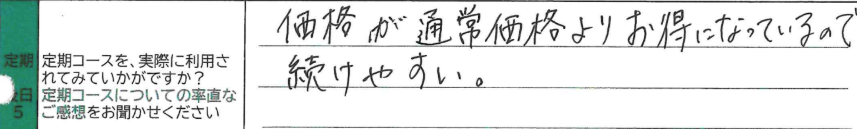 定期
定期コースを、実際に利用さ
れてみていかがですか？
定期コースについての率直な
ご感想をお聞かせください
5
価格が通常価格よりお得になっているので
続けやすい。